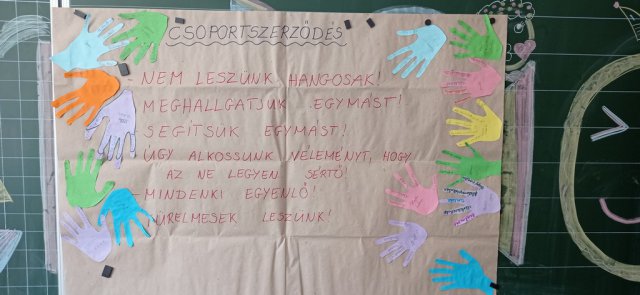 CSOPORTSZERZŐDÉS
- NEM LESZÜNK HANGOSAK!
MEGHALLGATJUK EGYMÁST!
SEGÍTSÜK EGYMÁST!
ÚGY ALKOSSUNK VÉLEMÉNYT, HOGY
AZ NE LEGYEN SÉRTŐ!
- MINDENKI EGYENLŐ!
TÜRELMESEK LESZÜNK!